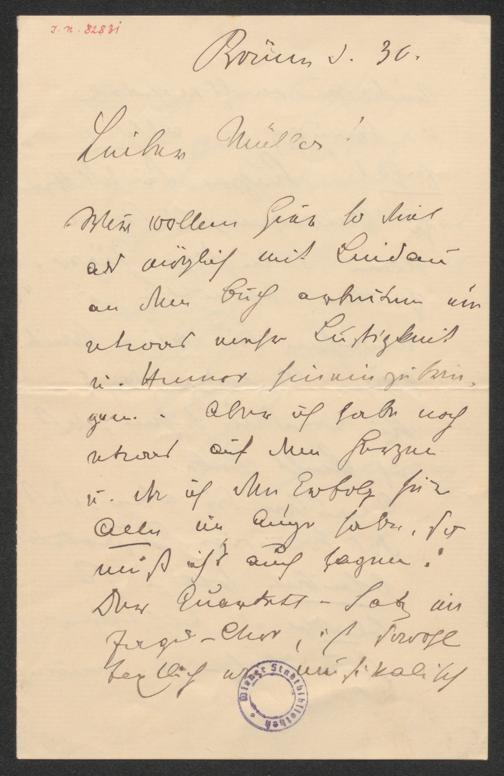 J. N. 82831
Brünn d. 30.
Lieber Müller!
Wir wollen hier so viel
als möglich mit Lindau
an dem Buch arbeiten um
etwas mehr Lustigkeit
u. Humor hineinzubrin-
gen. . Aber ich habe noch
etwas auf dem Herzen
u. da ich den Erfolg für
Alle im Auge habe, so
muß ich's auch sagen:
Der Quartett-Satz im
Jäger-Chor, ist sowohl
textlich als musikalisch
Wiener Stadtbibliothek